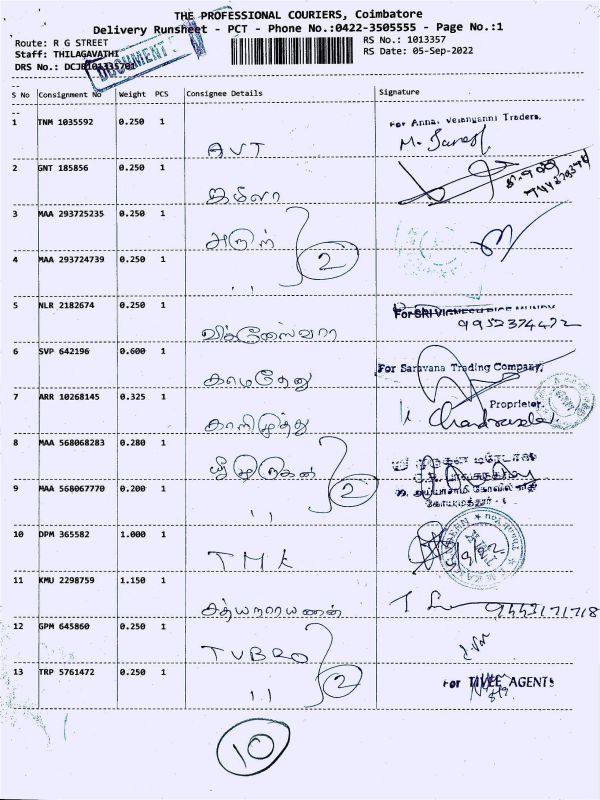 THE PROFESSIONAL COURIERS, Coimbatore
Delivery Runsheet - PCT - Phone No.:0422-3505555 - Page No.:1
Route: R G STREET
RS No.: 1013357
Staff: THILAGAVATHI
RS Date: 05-Sep-2022
DRS No.:
DOCUMENT
S No Consignment No Weight PCS Consignee Details Signature
For Annai Velanganni Traders.
1 TNM 1035592 0.250 1 AVT
2 GNT 185856 0.250 1
3 MAA 293725235 0.250 1 அருள்
2
4 MAA 293724739 0.250 1 ,,
For SRI VIGNESH RICE MUNDY
5 NLR 2182674 0.250 1 விக்னேஸ்வரா
9952374472
6 SVP 642196 0.600 1 காமதேனு
For Saravana Trading Company,
Proprietor.
7 ARR 10268145 0.325 1 காளிமுத்து
8 MAA 568068283 0.280 1 ஸ்ரீமுருகன்
2
9 MAA 568067770 0.200 1 ,,
10 DPM 365582 1.000 1 TMK
11 KMU 2298759 1.150 1 சத்யநாராயணன்
12 GPM 645860 0.250 1 TVBRO
2
13 TRP 5761472 0.250 1 ,,
For TIVEE AGENTS
10